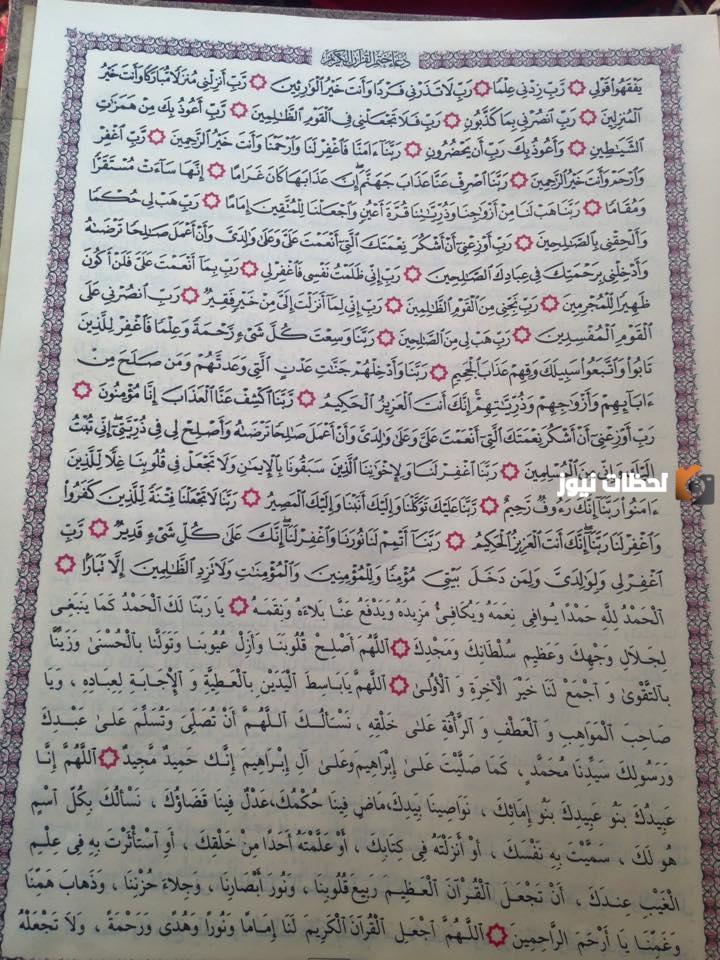 دعاء ختم القرآن الكريم
يَفْقَهُوا۟ قَوْلِى ۞ رَّبِّ زِدْنِى عِلْمًا ۞ رَبِّ لَا تَذَرْنِى فَرْدًا وَأَنتَ خَيْرُ ٱلْوَٰرِثِينَ ۞ رَّبِّ أَنزِلْنِى مُنزَلًا مُّبَارَكًا وَأَنتَ خَيْرُ
ٱلْمُنزِلِينَ ۞ رَبِّ ٱنصُرْنِى بِمَا كَذَّبُونِ ۞ رَبِّ فَلَا تَجْعَلْنِى فِى ٱلْقَوْمِ ٱلظَّٰلِمِينَ ۞ رَّبِّ أَعُوذُ بِكَ مِنْ هَمَزَٰتِ
ٱلشَّيَٰطِينِ ۞ وَأَعُوذُ بِكَ رَبِّ أَن يَحْضُرُونِ ۞ رَبَّنَآ ءَامَنَّا فَٱغْفِرْ لَنَا وَٱرْحَمْنَا وَأَنتَ خَيْرُ ٱلرَّٰحِمِينَ ۞ رَّبِّ ٱغْفِرْ
وَٱرْحَمْ وَأَنتَ خَيْرُ ٱلرَّٰحِمِينَ ۞ رَبَّنَا ٱصْرِفْ عَنَّا عَذَابَ جَهَنَّمَ إِنَّ عَذَابَهَا كَانَ غَرَامًا ۞ إِنَّهَا سَآءَتْ مُسْتَقَرًّا
وَمُقَامًا ۞ رَبَّنَا هَبْ لَنَا مِنْ أَزْوَٰجِنَا وَذُرِّيَّٰتِنَا قُرَّةَ أَعْيُنٍ وَٱجْعَلْنَا لِلْمُتَّقِينَ إِمَامًا ۞ رَبِّ هَبْ لِى حُكْمًا
وَأَلْحِقْنِى بِٱلصَّٰلِحِينَ ۞ رَبِّ أَوْزِعْنِىٓ أَنْ أَشْكُرَ نِعْمَتَكَ ٱلَّتِىٓ أَنْعَمْتَ عَلَىَّ وَعَلَىٰ وَٰلِدَىَّ وَأَنْ أَعْمَلَ صَٰلِحًا تَرْضَىٰهُ
وَأَدْخِلْنِى بِرَحْمَتِكَ فِى عِبَادِكَ ٱلصَّٰلِحِينَ ۞ رَبِّ إِنِّى ظَلَمْتُ نَفْسِى فَٱغْفِرْ لِى ۞ رَبِّ بِمَآ أَنْعَمْتَ عَلَىَّ فَلَنْ أَكُونَ
ظَهِيرًا لِّلْمُجْرِمِينَ ۞ رَبِّ نَجِّنِى مِنَ ٱلْقَوْمِ ٱلظَّٰلِمِينَ ۞ رَبِّ إِنِّى لِمَآ أَنزَلْتَ إِلَىَّ مِنْ خَيْرٍ فَقِيرٌ ۞ رَبِّ ٱنصُرْنِى عَلَى
ٱلْقَوْمِ ٱلْمُفْسِدِينَ ۞ رَبِّ هَبْ لِى مِنَ ٱلصَّٰلِحِينَ ۞ رَبَّنَا وَسِعْتَ كُلَّ شَىْءٍ رَّحْمَةً وَعِلْمًا فَٱغْفِرْ لِلَّذِينَ
تَابُوا۟ وَٱتَّبَعُوا۟ سَبِيلَكَ وَقِهِمْ عَذَابَ ٱلْجَحِيمِ ۞ رَبَّنَا وَأَدْخِلْهُمْ جَنَّٰتِ عَدْنٍ ٱلَّتِى وَعَدتَّهُمْ وَمَن صَلَحَ مِنْ
ءَابَآئِهِمْ وَأَزْوَٰجِهِمْ وَذُرِّيَّٰتِهِمْ إِنَّكَ أَنتَ ٱلْعَزِيزُ ٱلْحَكِيمُ ۞ رَّبَّنَا ٱكْشِفْ عَنَّا ٱلْعَذَابَ إِنَّا مُؤْمِنُونَ ۞
رَبِّ أَوْزِعْنِىٓ أَنْ أَشْكُرَ نِعْمَتَكَ ٱلَّتِىٓ أَنْعَمْتَ عَلَىَّ وَعَلَىٰ وَٰلِدَىَّ وَأَنْ أَعْمَلَ صَٰلِحًا تَرْضَىٰهُ وَأَصْلِحْ لِى فِى ذُرِّيَّتِىٓ إِنِّى تُبْتُ
إِلَيْكَ وَإِنِّى مِنَ ٱلْمُسْلِمِينَ ۞ رَبَّنَا ٱغْفِرْ لَنَا وَلِإِخْوَٰنِنَا ٱلَّذِينَ سَبَقُونَا بِٱلْإِيمَٰنِ وَلَا تَجْعَلْ فِى قُلُوبِنَا غِلًّا لِّلَّذِينَ
لحظات نيوز
ءَامَنُوا۟ رَبَّنَآ إِنَّكَ رَءُوفٌ رَّحِيمٌ ۞ رَّبَّنَا عَلَيْكَ تَوَكَّلْنَا وَإِلَيْكَ أَنَبْنَا وَإِلَيْكَ ٱلْمَصِيرُ ۞ رَبَّنَا لَا تَجْعَلْنَا فِتْنَةً لِّلَّذِينَ كَفَرُوا۟
وَٱغْفِرْ لَنَا رَبَّنَآ إِنَّكَ أَنتَ ٱلْعَزِيزُ ٱلْحَكِيمُ ۞ رَبَّنَآ أَتْمِمْ لَنَا نُورَنَا وَٱغْفِرْ لَنَآ إِنَّكَ عَلَىٰ كُلِّ شَىْءٍ قَدِيرٌ ۞ رَّبِّ
ٱغْفِرْ لِى وَلِوَٰلِدَىَّ وَلِمَن دَخَلَ بَيْتِىَ مُؤْمِنًا وَلِلْمُؤْمِنِينَ وَٱلْمُؤْمِنَٰتِ وَلَا تَزِدِ ٱلظَّٰلِمِينَ إِلَّا تَبَارًۢا ۞
الْحَمْدُ لِلَّهِ حَمْدًا يُوَافِى نِعَمَهُ وَيُكَافِئُ مَزِيدَهُ وَيَدْفَعُ عَنَّا بَلَاءَهُ وَنِقَمَهُ ۞ يَا رَبَّنَا لَكَ الْحَمْدُ كَمَا يَنبَغِى
لِجَلَالِ وَجْهِكَ وَعَظِيمِ سُلْطَانِكَ وَمَجْدِكَ ۞ اللَّهُمَّ أَصْلِحْ قُلُوبَنَا وَأَزِلْ عُيُوبَنَا وَتَوَلَّنَا بِالْحُسْنَىٰ وَزَيِّنَّا
بِالتَّقْوَىٰ وَ اجْمَعْ لَنَا خَيْرَ الْآخِرَةِ وَ الْأُولَىٰ ۞ اللَّهُمَّ يَا بَاسِطَ الْيَدَيْنِ بِالْعَطِيَّةِ وَ الْإِجَابَةِ لِعِبَادِهِ ، وَيَا
صَاحِبَ الْمَوَاهِبِ وَ الْعَطْفِ وَ الرَّأْفَةِ عَلَىٰ خَلْقِهِ ، نَسْأَلُكَ اللَّهُمَّ أَنْ تُصَلِّىَ وَتُسَلِّمَ عَلَىٰ عَبْدِكَ
وَرَسُولِكَ سَيِّدِنَا مُحَمَّدٍ ، كَمَا صَلَّيْتَ عَلَىٰ إِبْرَاهِيمَ وَعَلَىٰ آلِ إِبْرَاهِيمَ إِنَّكَ حَمِيدٌ مَّجِيدٌ ۞ اللَّهُمَّ إِنَّا
عَبِيدُكَ بَنُو عَبِيدِكَ بَنُو إِمَائِكَ ، نَوَاصِينَا بِيَدِكَ، مَاضٍ فِينَا حُكْمُكَ، عَدْلٌ فِينَا قَضَاؤُكَ ، نَسْأَلُكَ بِكُلِّ اسْمٍ
هُوَ لَكَ ، سَمَّيْتَ بِهِ نَفْسَكَ ، أَوْ أَنْزَلْتَهُ فِى كِتَابِكَ ، أَوْ عَلَّمْتَهُ أَحَدًا مِنْ خَلْقِكَ ، أَوِ اسْتَأْثَرْتَ بِهِ فِى عِلْمِ
الْغَيْبِ عِندَكَ ، أَنْ تَجْعَلَ الْقُرْآنَ الْعَظِيمَ رَبِيعَ قُلُوبِنَا ، وَنُورَ أَبْصَارِنَا ، وَجِلَاءَ حُزْنِنَا ، وَذَهَابَ هَمِّنَا
وَغَمِّنَا يَا أَرْحَمَ الرَّاحِمِينَ ۞ اللَّهُمَّ اجْعَلِ الْقُرْآنَ الْكَرِيمَ لَنَا إِمَامًا وَنُورًا وَهُدًى وَرَحْمَةً ، وَلَا تَجْعَلْهُ